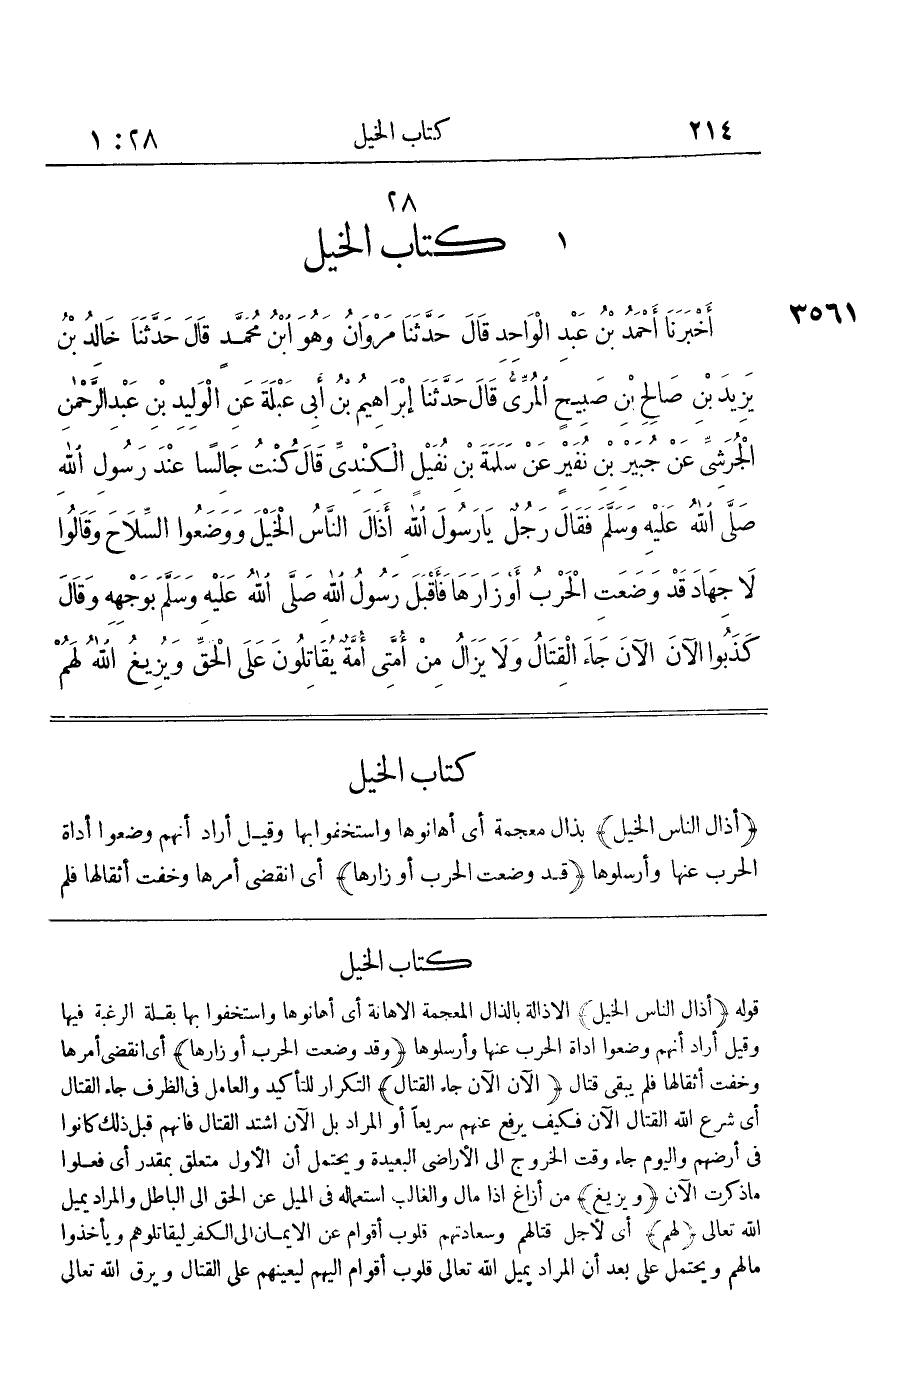 ٢١٤ كتاب الخيل ٢٨: ١
٢٨
١ كتاب الخيل
٣٥٦١ أَخْبَرَنَا أَحْمَدُ بْنُ عَبْدِ الْوَاحِدِ قَالَ حَدَّثَنَا مَرْوَانُ وَهُوَ ابْنُ مُحَمَّدٍ قَالَ حَدَّثَنَا خَالِدُ بْنُ
يَزِيدَ بْنِ صَالِحِ بْنِ صَبِيحٍ الْمُرِّىُّ قَالَ حَدَّثَنَا إِبْرَاهِيمُ بْنُ أَبِى عَبْلَةَ عَنِ الْوَلِيدِ بْنِ عَبْدِ الرَّحْمٰنِ
الْجُرَشِىِّ عَنْ جُبَيْرِ بْنِ نُفَيْرٍ عَنْ سَلَمَةَ بْنِ نُفَيْلٍ الْكِنْدِىِّ قَالَ كُنْتُ جَالِسًا عِنْدَ رَسُولِ اللهِ
صَلَّى اللهُ عَلَيْهِ وَسَلَّمَ فَقَالَ رَجُلٌ يَارَسُولَ اللهِ أَذَالَ النَّاسُ الْخَيْلَ وَوَضَعُوا السِّلَاحَ وَقَالُوا
لَا جِهَادَ قَدْ وَضَعَتِ الْحَرْبُ أَوْزَارَهَا فَأَقْبَلَ رَسُولُ اللهِ صَلَّى اللهُ عَلَيْهِ وَسَلَّمَ بِوَجْهِهِ وَقَالَ
كَذَبُوا الْآنَ الْآنَ جَاءَ الْقِتَالُ وَلَا يَزَالُ مِنْ أُمَّتِى أُمَّةٌ يُقَاتِلُونَ عَلَى الْحَقِّ وَيُزِيغُ اللهُ لَهُمْ
كتاب الخيل
﴿أذال الناس الخيل﴾ بذال معجمة أى أهانوها واستخفوا بها وقيل أراد أنهم وضعوا أداة
الحرب عنها وأرسلوها ﴿قد وضعت الحرب أوزارها﴾ أى انقضى أمرها وخفت أثقالها فلم
كتاب الخيل
قوله ﴿أذال الناس الخيل﴾ الاذالة بالذال المعجمة الاهانة أى أهانوها واستخفوا بها بقلة الرغبة فيها
وقيل أراد أنهم وضعوا اداة الحرب عنها وأرسلوها ﴿وقد وضعت الحرب أوزارها﴾ أى انقضى أمرها
وخفت أثقالها فلم يبقى قتال ﴿الآن الآن جاء القتال﴾ التكرار للتأكيد والعامل فى الظرف جاء القتال
أى شرع الله القتال الآن فكيف يرفع عنهم سريعاً أو المراد بل الآن اشتد القتال فانهم قبل ذلك كانوا
فى أرضهم واليوم جاء وقت الخروج الى الأراضى البعيدة ويحتمل أن الأول متعلق بمقدر أى فعلوا
ماذكرت الآن ﴿ويزيغ﴾ من أزاغ اذا مال والغالب استعماله فى الميل عن الحق الى الباطل والمراد يميل
الله تعالى ﴿لهم﴾ أى لأجل قتالهم وسعادتهم قلوب أقوام عن الايمان الى الكفر ليقاتلوهم ويأخذوا
مالهم ويحتمل على بعد أن المراد يميل الله تعالى قلوب أقوام اليهم ليعينهم على القتال ويرق الله تعالى